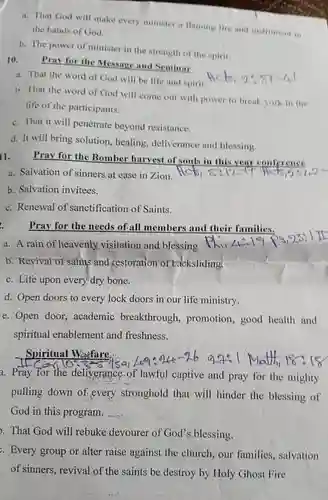 a. That God will make every minister a flaming fire and instrument in
the hands of God.
b. The power of minister in the strength of the spirit.
10. Pray for the Message and Seminar
a. That the word of God will be life and spirit. Acts, 2:37-41
b. That the word of God will come out with power to break yoke in the
life of the participants.
c. That it will penetrate beyond resistance.
d. It will bring solution, healing, deliverance and blessing.
11. Pray for the Bomber harvest of souls in this year conference
a. Salvation of sinners at ease in Zion. Acts, 5:12-
b. Salvation invitees.
c. Renewal of sanctification of Saints.
. Pray for the needs of all members and their families.
a. A rain of heavenly visitation and blessing Phi, 4:19 Ps,23:1
b. Revival of saints and restoration of backsliding.
c. Life upon every dry bone.
d. Open doors to every lock doors in our life ministry.
e. Open door, academic breakthrough, promotion, good health and
spiritual enablement and freshness.
Spiritual Warfare.
II Cor, 10:3-5 Isa, 49:24-26 Matth, 18:18
a. Pray for the deliverance of lawful captive and pray for the mighty
pulling down of every stronghold that will hinder the blessing of
God in this program.
. That God will rebuke devourer of God's blessing.
. Every group or alter raise against the church, our families, salvation
of sinners, revival of the saints be destroy by Holy Ghost Fire